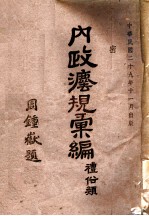 中華民國二十九年十一月自泉
密
內政法規彙編
禮俗類
周鍾嶽題